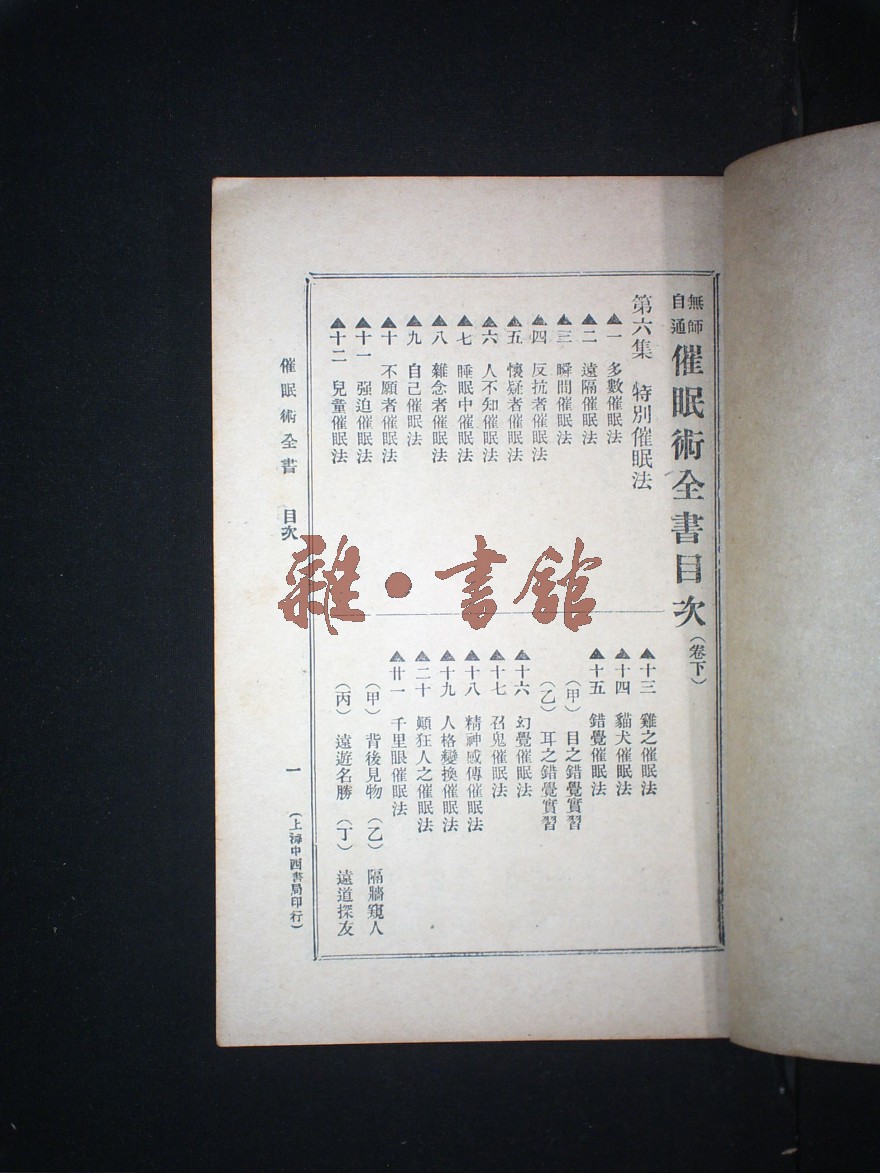 無師自通 催眠術全書目次(卷下)
第六集 特別催眠法
▲一 多數催眠法
▲二 遠隔催眠法
▲三 瞬間催眠法
▲四 反抗者催眠法
▲五 懷疑者催眠法
▲六 人不知催眠法
▲七 睡眠中催眠法
▲八 雜念者催眠法
▲九 自己催眠法
▲十 不願者催眠法
▲十一 强迫催眠法
▲十二 兒童催眠法
▲十三 雞之催眠法
▲十四 貓犬催眠法
▲十五 錯覺催眠法
(甲)目之錯覺實習
(乙)耳之錯覺實習
▲十六 幻覺催眠法
▲十七 召鬼催眠法
▲十八 精神感傳催眠法
▲十九 人格變換催眠法
▲二十 顚狂人之催眠法
▲廿一 千里眼催眠法
(甲)背後見物 (乙)隔牆窺人
(丙)遠遊名勝 (丁)遠道探友
催眠術全書 目次 一 (上海中西書局印行)
雜·書館